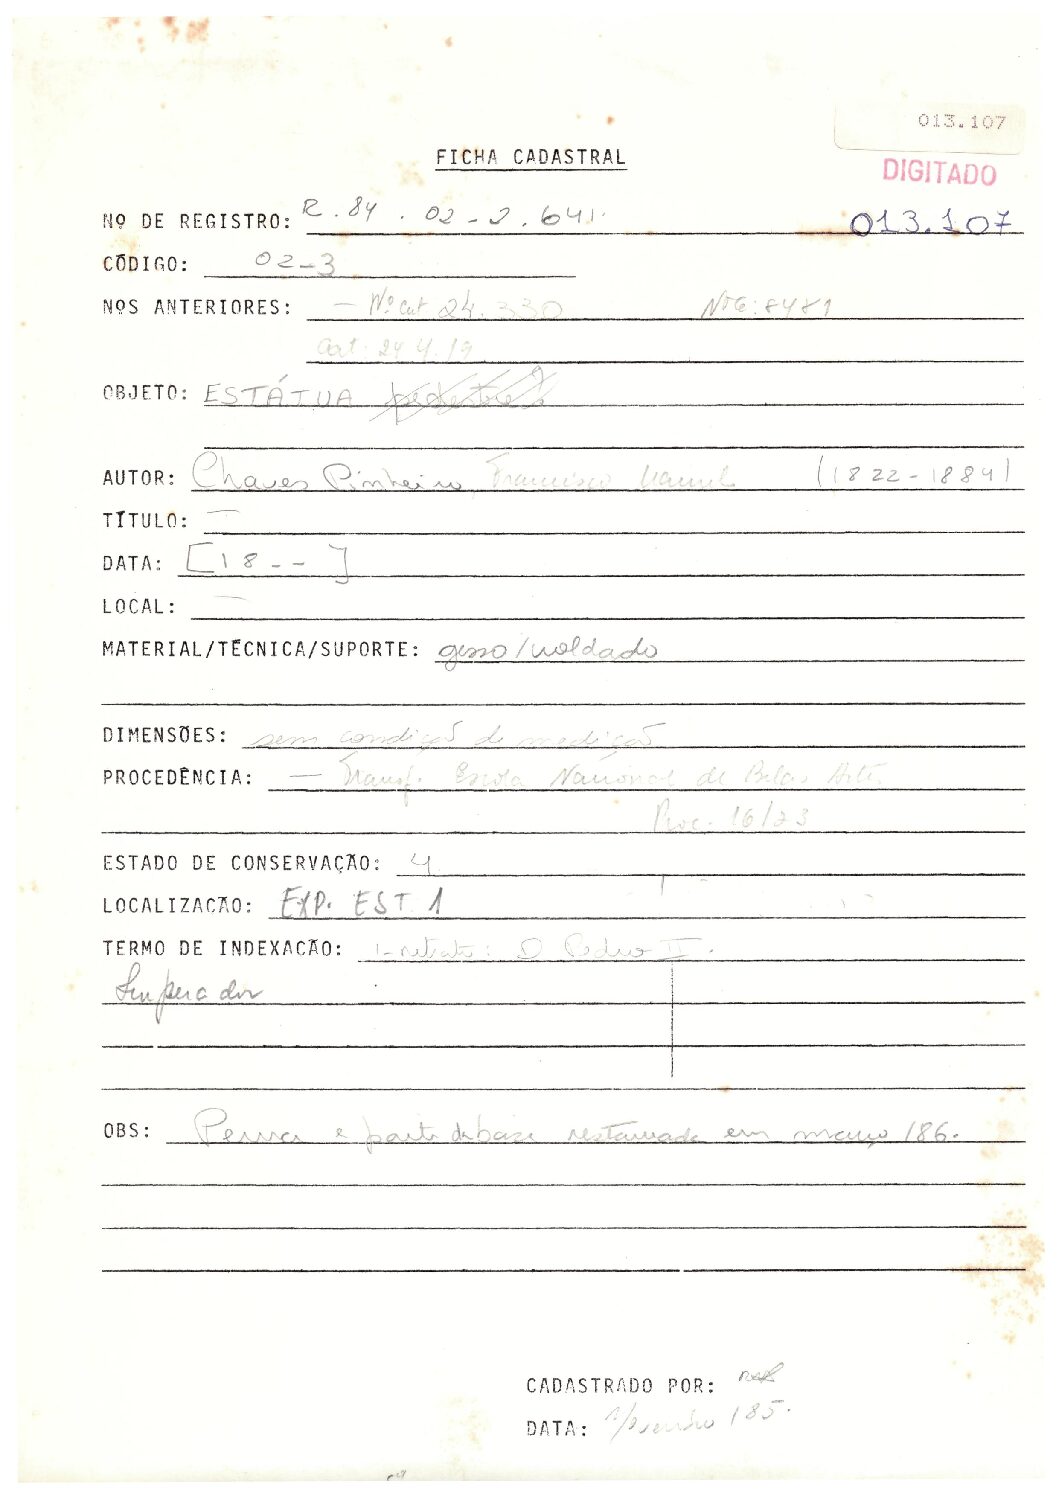 013.107
FICHA CADASTRAL
DIGITADO
Nº DE REGISTRO: R.84.02-2.641.
013.107
CÓDIGO: 02-3
NOS ANTERIORES: — Nº Cat 24.330 NTG: 8481
Cat. 24 4.19
OBJETO: ESTÁTUA pedestre
AUTOR: Chaves Pinheiro, Francisco Manuel (1822-1884)
TÍTULO: —
DATA: [18--]
LOCAL: —
MATERIAL/TÉCNICA/SUPORTE: gesso/moldado
DIMENSÕES: sem condição de medição
PROCEDÊNCIA: — Transf. Escola Nacional de Belas Artes
Proc. 16/23
ESTADO DE CONSERVAÇÃO: 4
LOCALIZAÇÃO: EXP. EST. 1
TERMO DE INDEXAÇÃO: 1-retrato: D Pedro II.
Imperador
OBS: Perna e parte da base restaurada em março/86.
CADASTRADO POR:
DATA: /85.